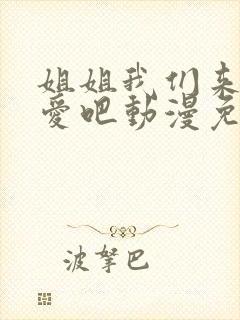 姐姐我们来
爱吧動漫免
波拏巴